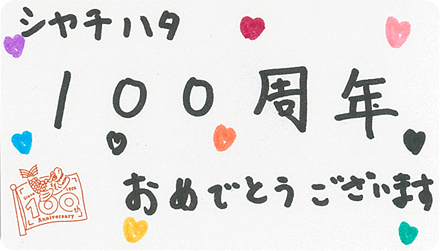 シヤチハタ
100周年
おめでとうございます
100th
Anniversary